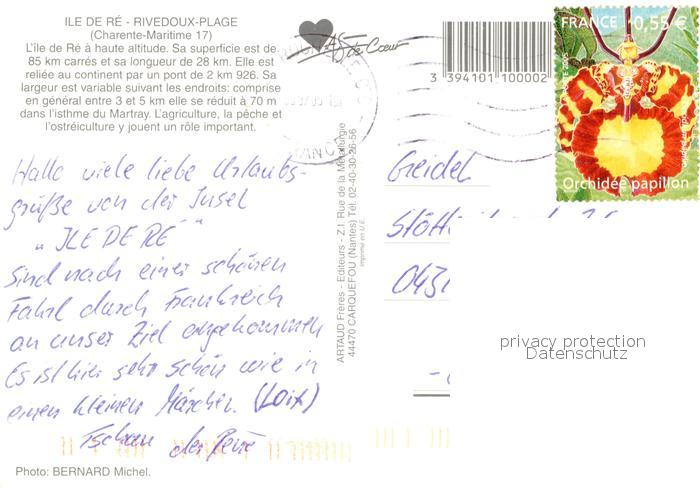 ILE DE RÉ - RIVEDOUX-PLAGE
(Charente-Maritime 17)
L'île de Ré à haute altitude. Sa superficie est de
85 km carrés et sa longueur de 28 km. Elle est
reliée au continent par un pont de 2 km 926. Sa
largeur est variable suivant les endroits: comprise
en général entre 3 et 5 km elle se réduit à 70 m
dans l'isthme du Martray. L'agriculture, la pêche et
l'ostréiculture y jouent un rôle important.
As de Cœur
3 394101 100002
FRANCE 0,55 €
Orchidée papillon
Hallo viele liebe Urlaubs-
grüße von der Insel
"ILE DE RÉ"
Sind nach einer schönen
Fahrt durch Frankreich
an unser Ziel angekommen
Es ist hier sehr schön wie in
einen kleinen Märchen. (Loix)
ARTAUD Frères - Editeurs - Z.I. Rue de la Métallurgie
44470 CARQUEFOU (Nantes) Tél. 02-40-30-26-56
Imprimé en U.E.
Geidel
0431
privacy protection
Datenschutz
Photo: BERNARD Michel.